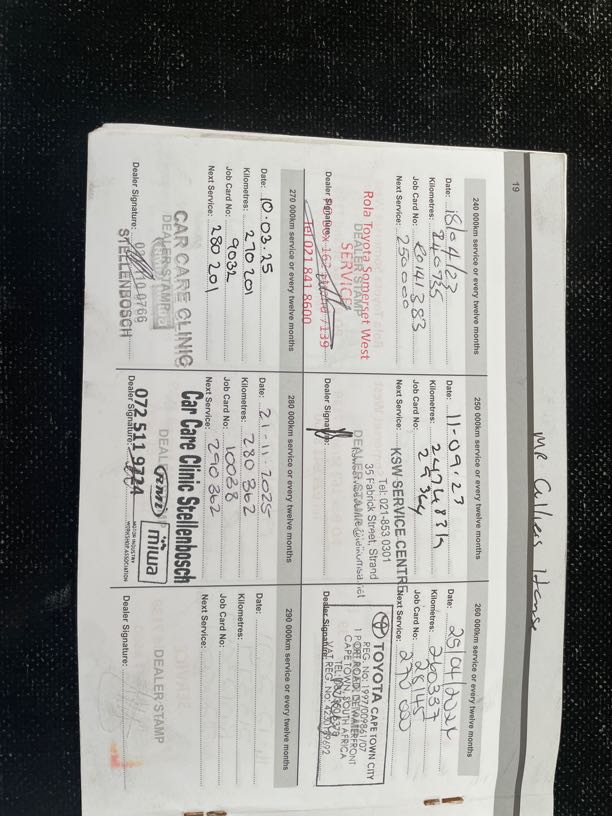 19
240 000km service or every twelve months
Date: 18/04/23
Kilometres: 240735
Job Card No:
Next Service: 250000
Rola Toyota Somerset West
SERVICE
DEALER STAMP
Dealer Signature:
Tel 021 841 8600
250 000km service or every twelve months
Date: 11-09-23
Kilometres:
Job Card No:
Next Service:
KSW SERVICE CENTRE
Tel: 021-853 0301
35 Fabriek Street, Strand
DEALER STAMP
Dealer Signature:
260 000km service or every twelve months
Date: 25/4/2024
Kilometres: 260337
Job Card No: 25145
Next Service: 270 000
TOYOTA CAPE TOWN CITY
REG. No: 1997/009861/07
1 PORT ROAD, DE WATERFRONT
CAPE TOWN, SOUTH AFRICA
Dealer Signature:
270 000km service or every twelve months
Date: 10.03.25
Kilometres: 270 201
Job Card No: 9032
Next Service: 280 201
CAR CARE CLINIC
DEALER STAMP
STELLENBOSCH
Dealer Signature:
280 000km service or every twelve months
Date: 21-11-2025
Kilometres: 280 362
Job Card No: 10038
Next Service: 290 362
Car Care Clinic Stellenbosch
rmi miwa
MOTOR INDUSTRY
WORKSHOP ASSOCIATION
072 511 9724
Dealer Signature:
290 000km service or every twelve months
Date:
Kilometres:
Job Card No:
Next Service:
DEALER STAMP
Dealer Signature: